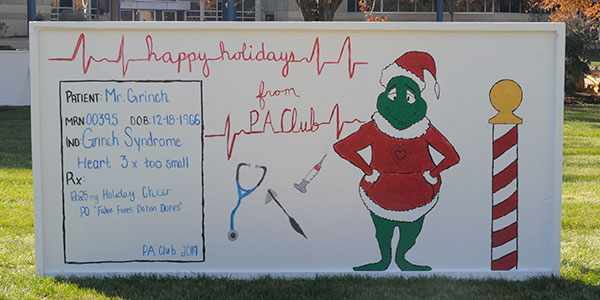 happy holidays
from
PA Club
PATIENT: Mr. Grinch
MRN: 00395 DOB: 12-18-1966
IND: Grinch Syndrome
Heart 3x too small
Rx:
25mg Holiday Cheer
PO "Fahoo Fores Dahoo Dores"
PA Club 2019